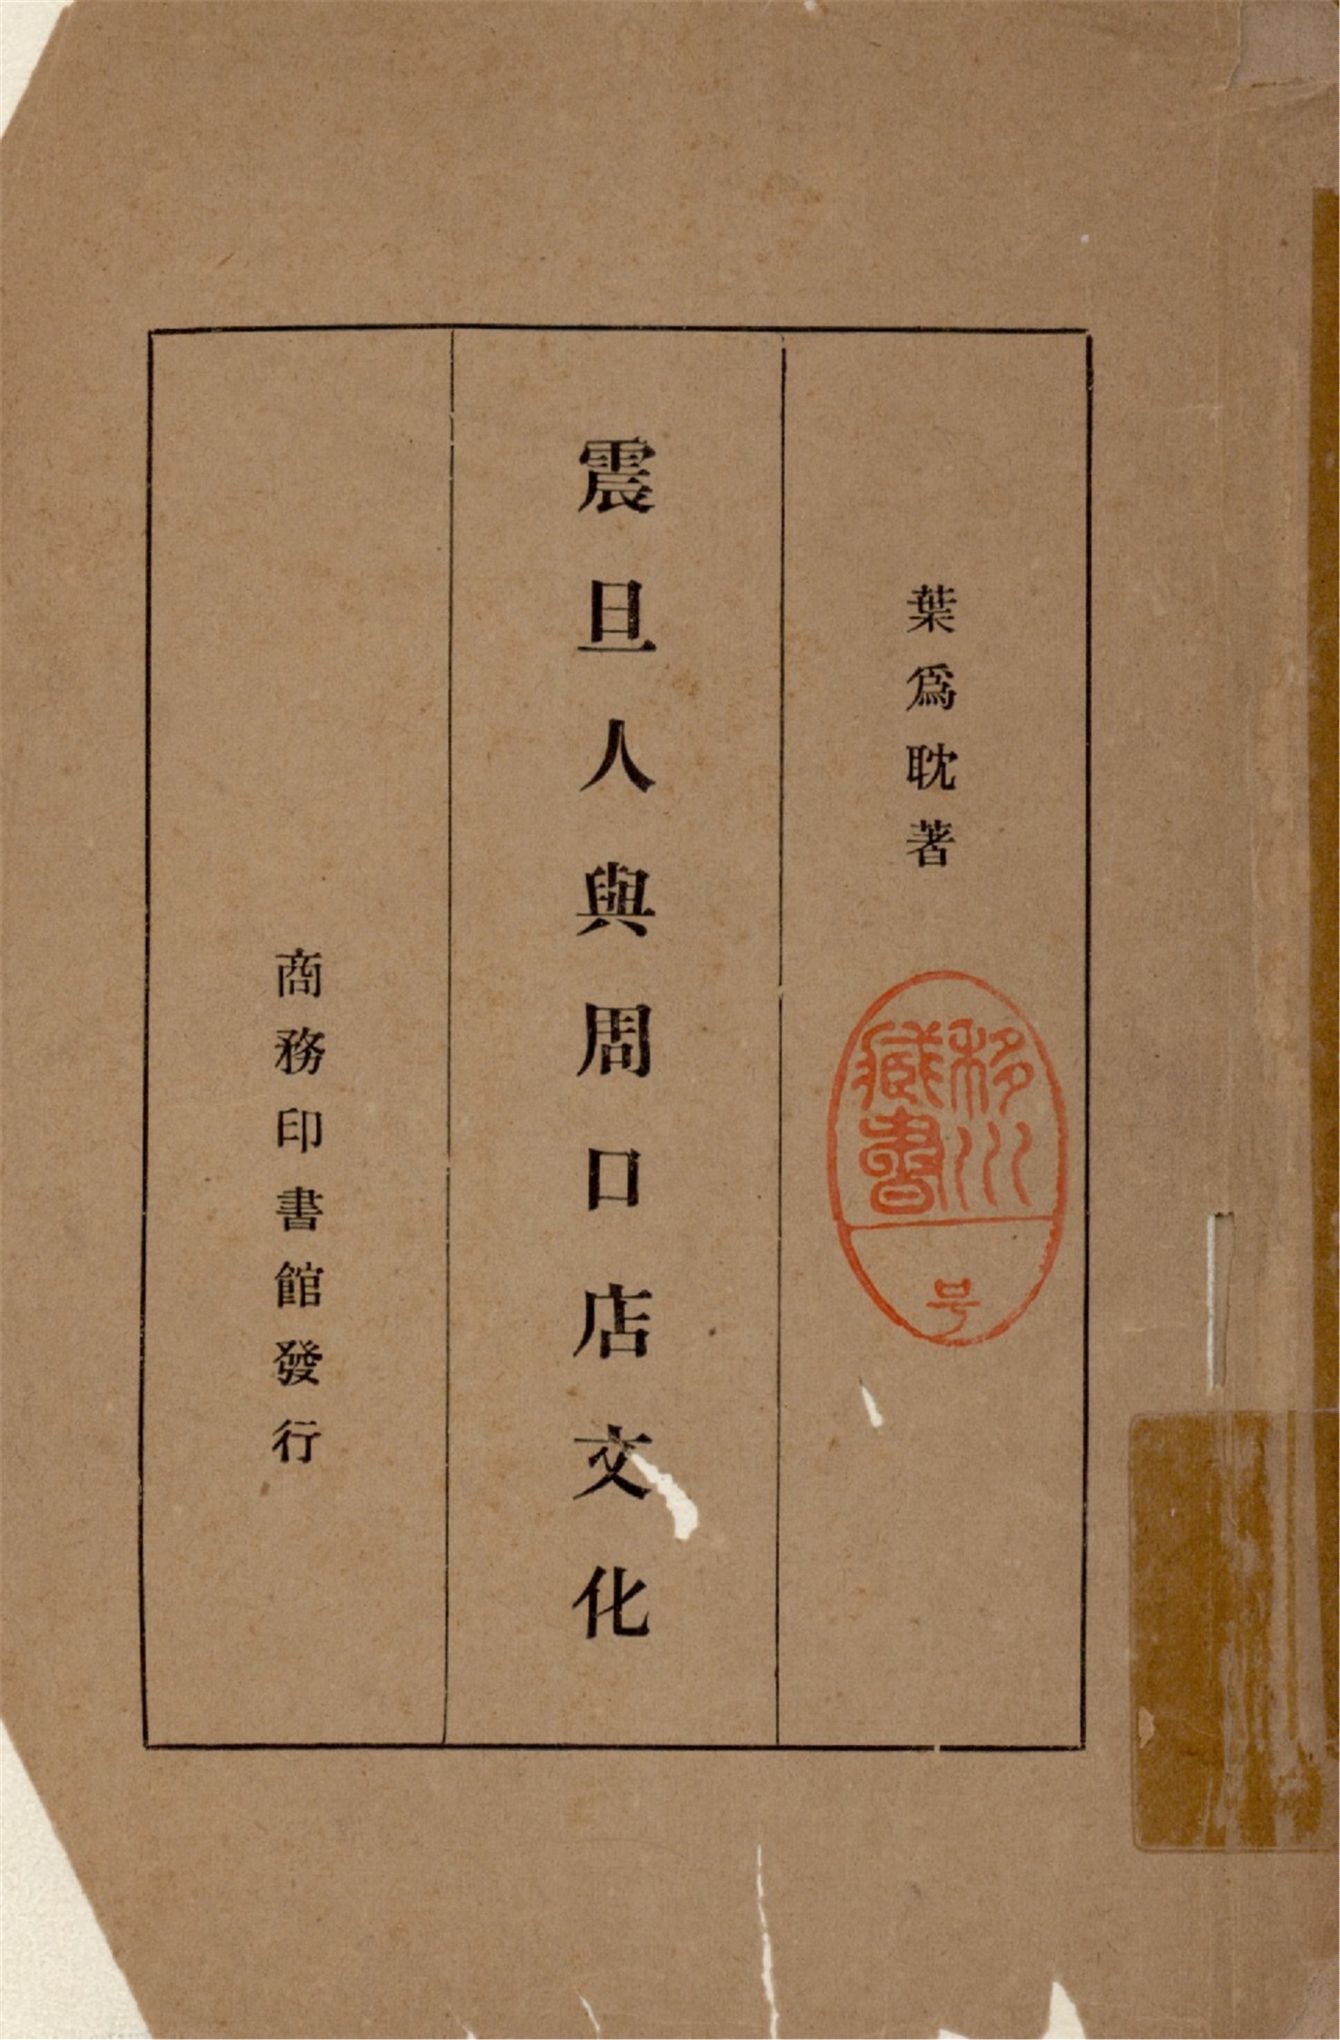 葉爲耽著
移川
藏書
号
震旦人與周口店文化
商務印書館發行